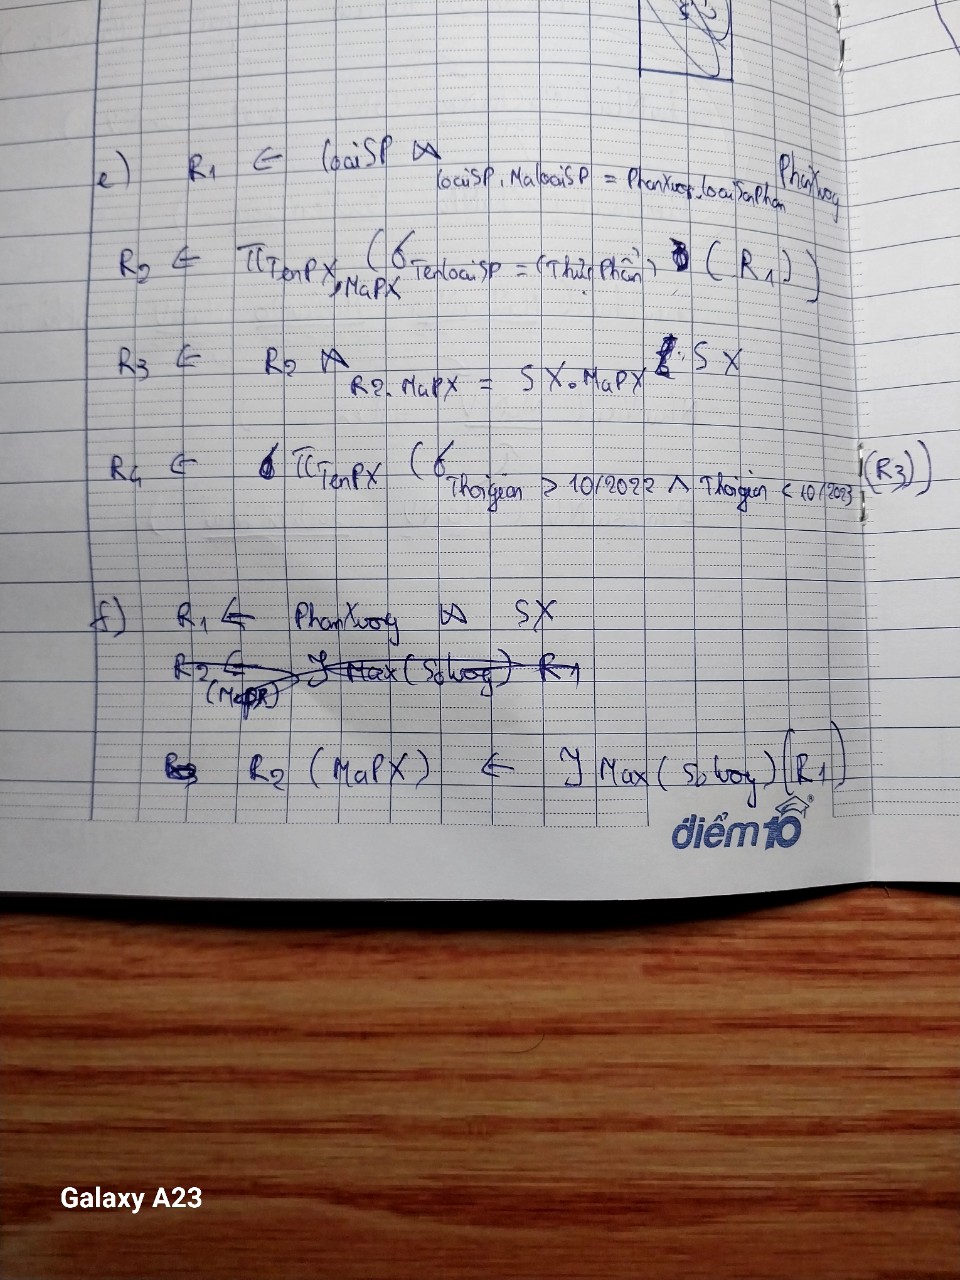 e) R1 ← LoaiSP ⋈ LoaiSP.MaloaiSP = PhanXuog.LoaiSanPhan PhanXuog
R2 ← π TenPX, MaPX (σ TenloaiSP = (Thực Phẩn) (R1))
R3 ← R2 ⋈ R2.MaPX = SX.MaPX SX
R4 ← π TenPX (σ Thoigian > 10/2022 ∧ Thoigian < 10/2023 (R3))
f) R1 ← PhanXuog ⋈ SX
R2 ← (MaPX) ℑ Max(Solwog) R1
R2 (MaPX) ← ℑ Max(Solwog)(R1)
điểm10
Galaxy A23